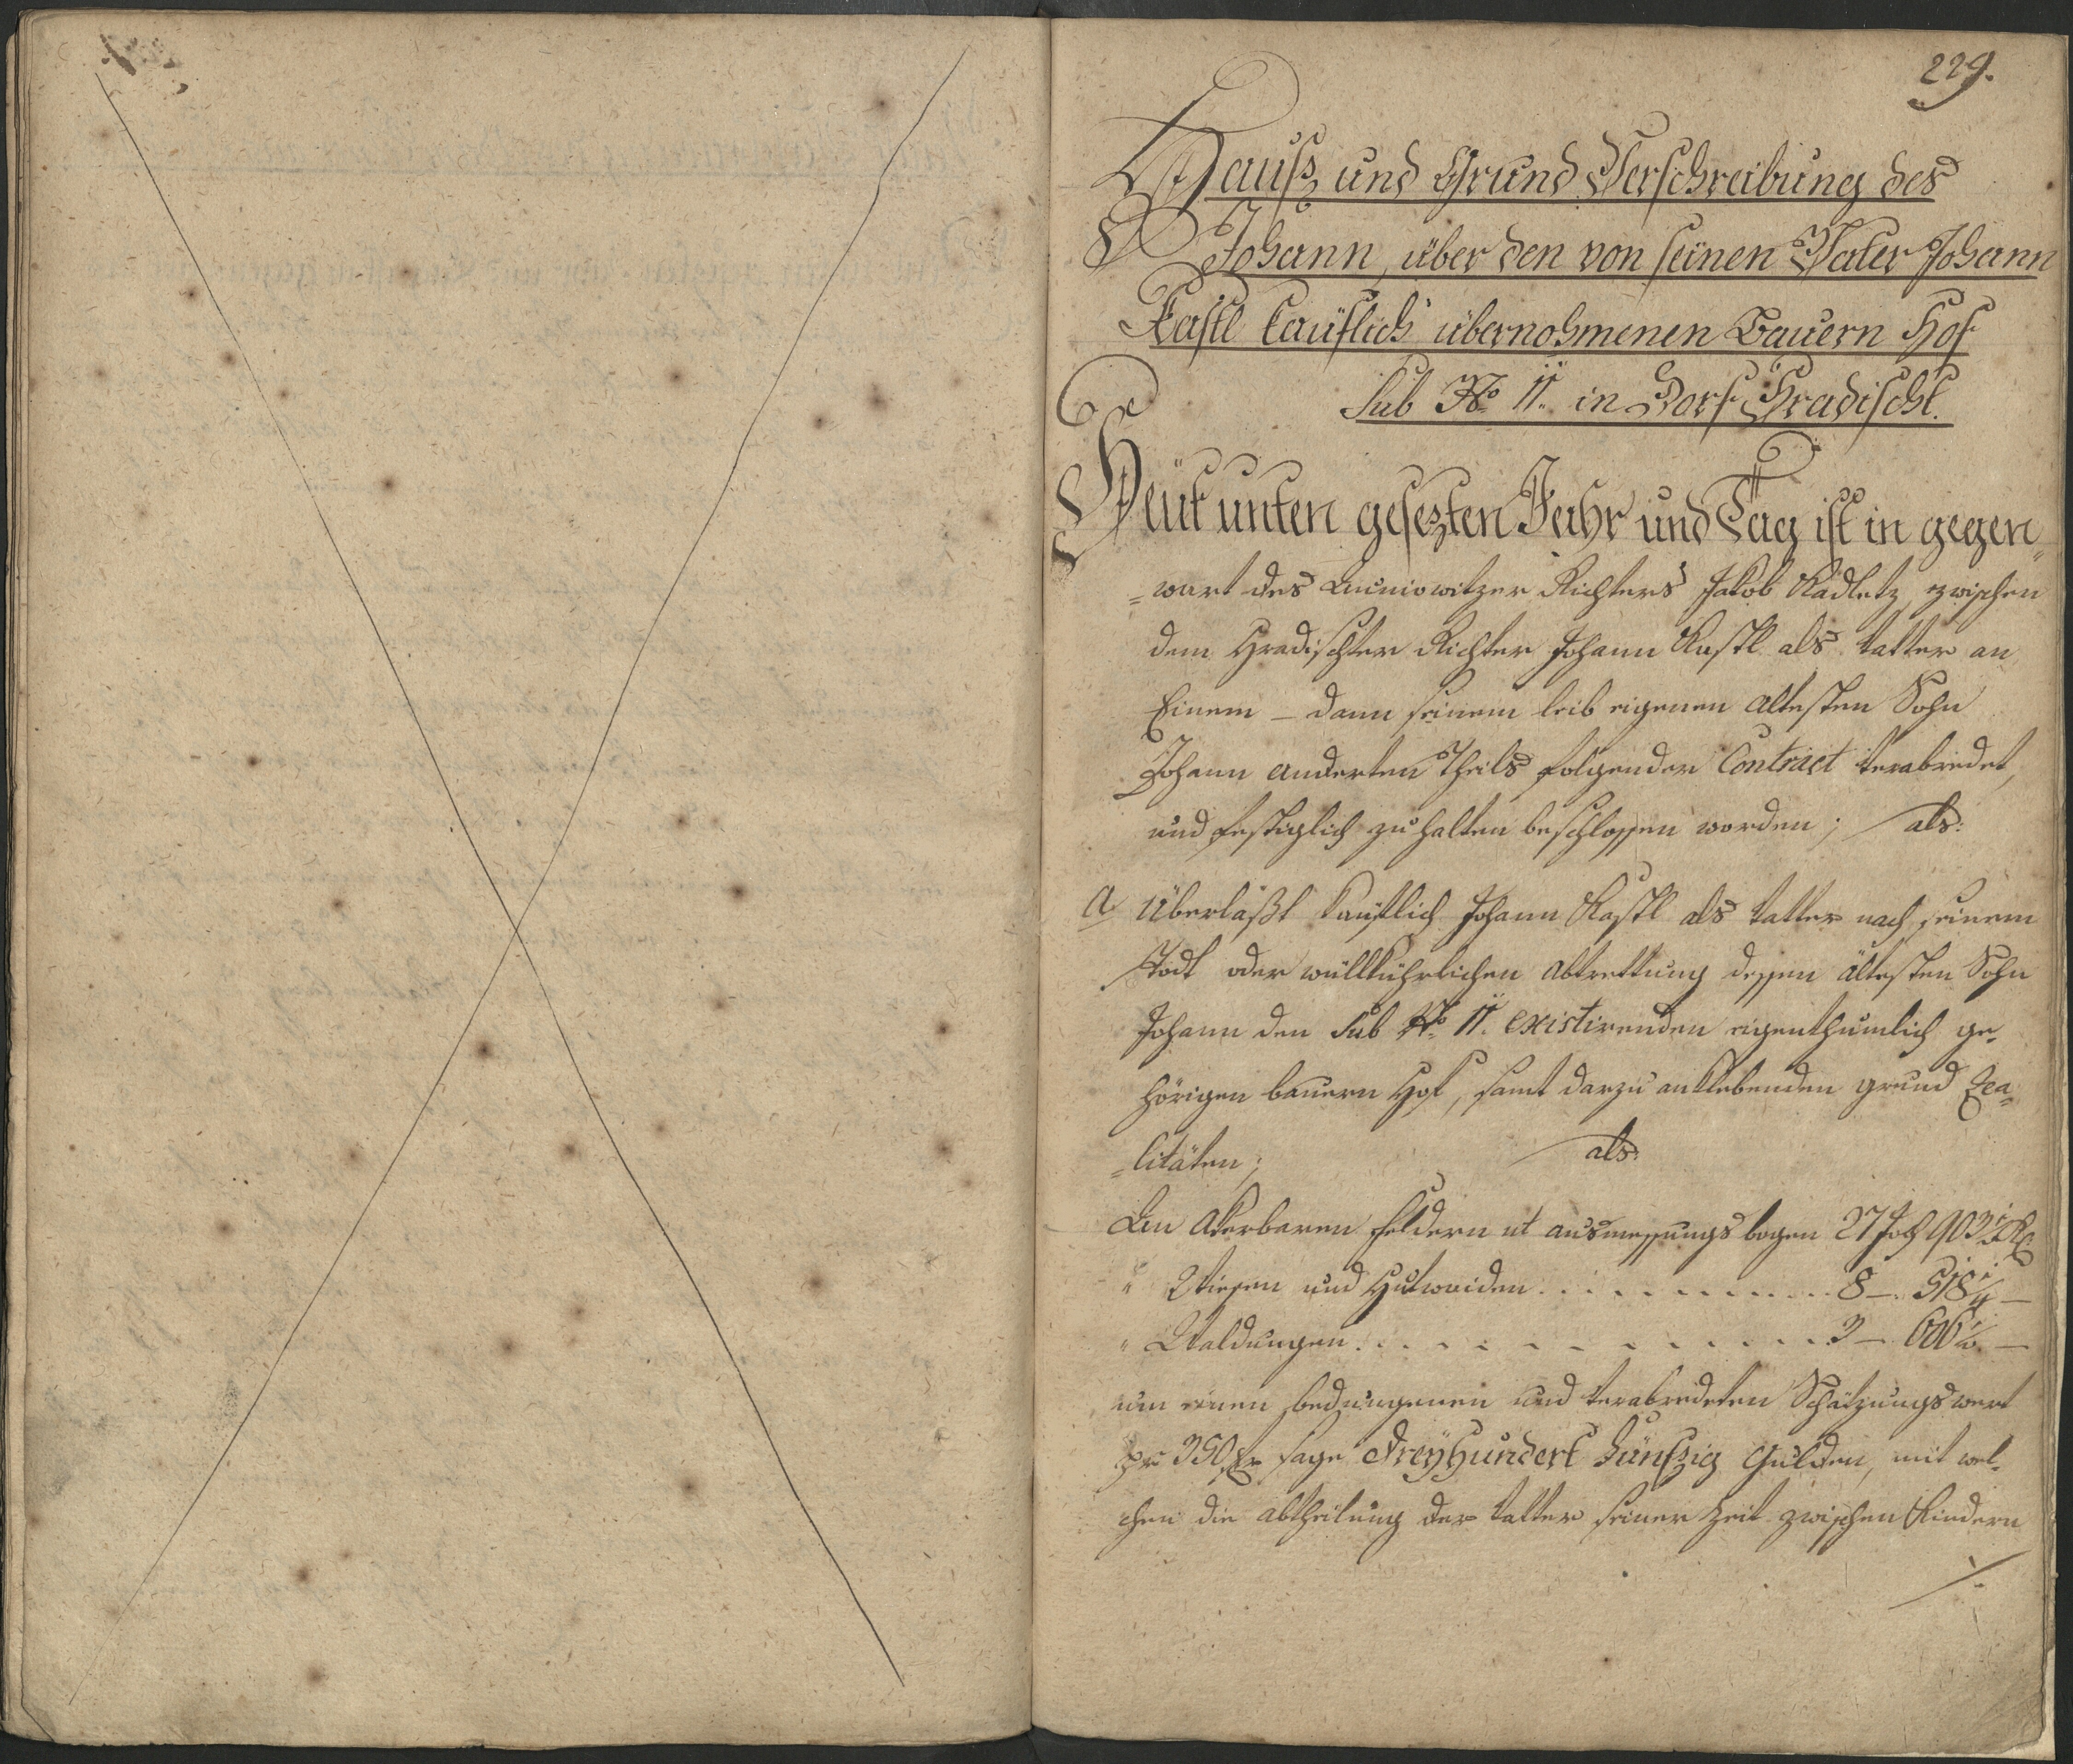 229.
Hauß und Grund Verschreibung des
Johann, über den von seinen Vater Johann
Kastl Käuflich übernohmenen Bauern Hof
Sub No. 11. in Dorf Hradischt.
Heut unten gesezten Jahr und Tag ist in gegen-
-wart des Richters Jakob Radletz, zwischen
dem Hradischter Richter Johann Kastl als Vatter an
Einem – dann seinem leib eigenen ältesten Sohn
Johann anderten Theils folgender Contract verabredet,
und festiglich zu halten beschlossen worden; als:
a Überläßt Käuflich Johann Kastl als Vatter nach seinem
Todt oder willkührlichen abtrettung dessen ältesten Sohn
Johann den Sub No. 11. existirenden eigenthumlich ge-
hörigen bauern Hof, samt darzu anklebenden grund Rea-
-litäten; als
An Akerbaren feldern ut ausmessungs bogen 27 Joch 903
" Wiesen und Hutweiden . . . . . . . . . . . 8 – 518 –
" Waldungen . . . . . . . . . . . . 3 – 606 –
um einen bedungenen und verabredeten Schätzungs wert
pr 350 fr sage Dreÿhundert Fünfzig Gulden, mit wel-
chen die abtheilung der Vatter seiner Zeit zwischen Kindern
./.